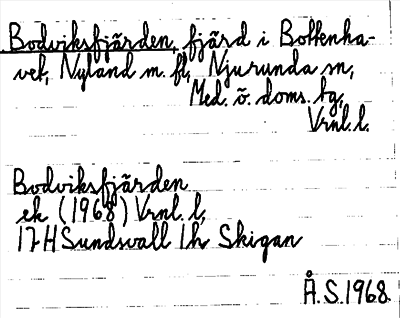 Bodviksfjärden, fjärd i Bottenha-
vet, Nyland m. fl, Njurunda sn,
Med. ö. doms. tg,
Vrnl. l.
Bodviksfjärden
ek (1968) Vrnl. l,
17H Sundsvall 1h Skigan
Å.S.1968.